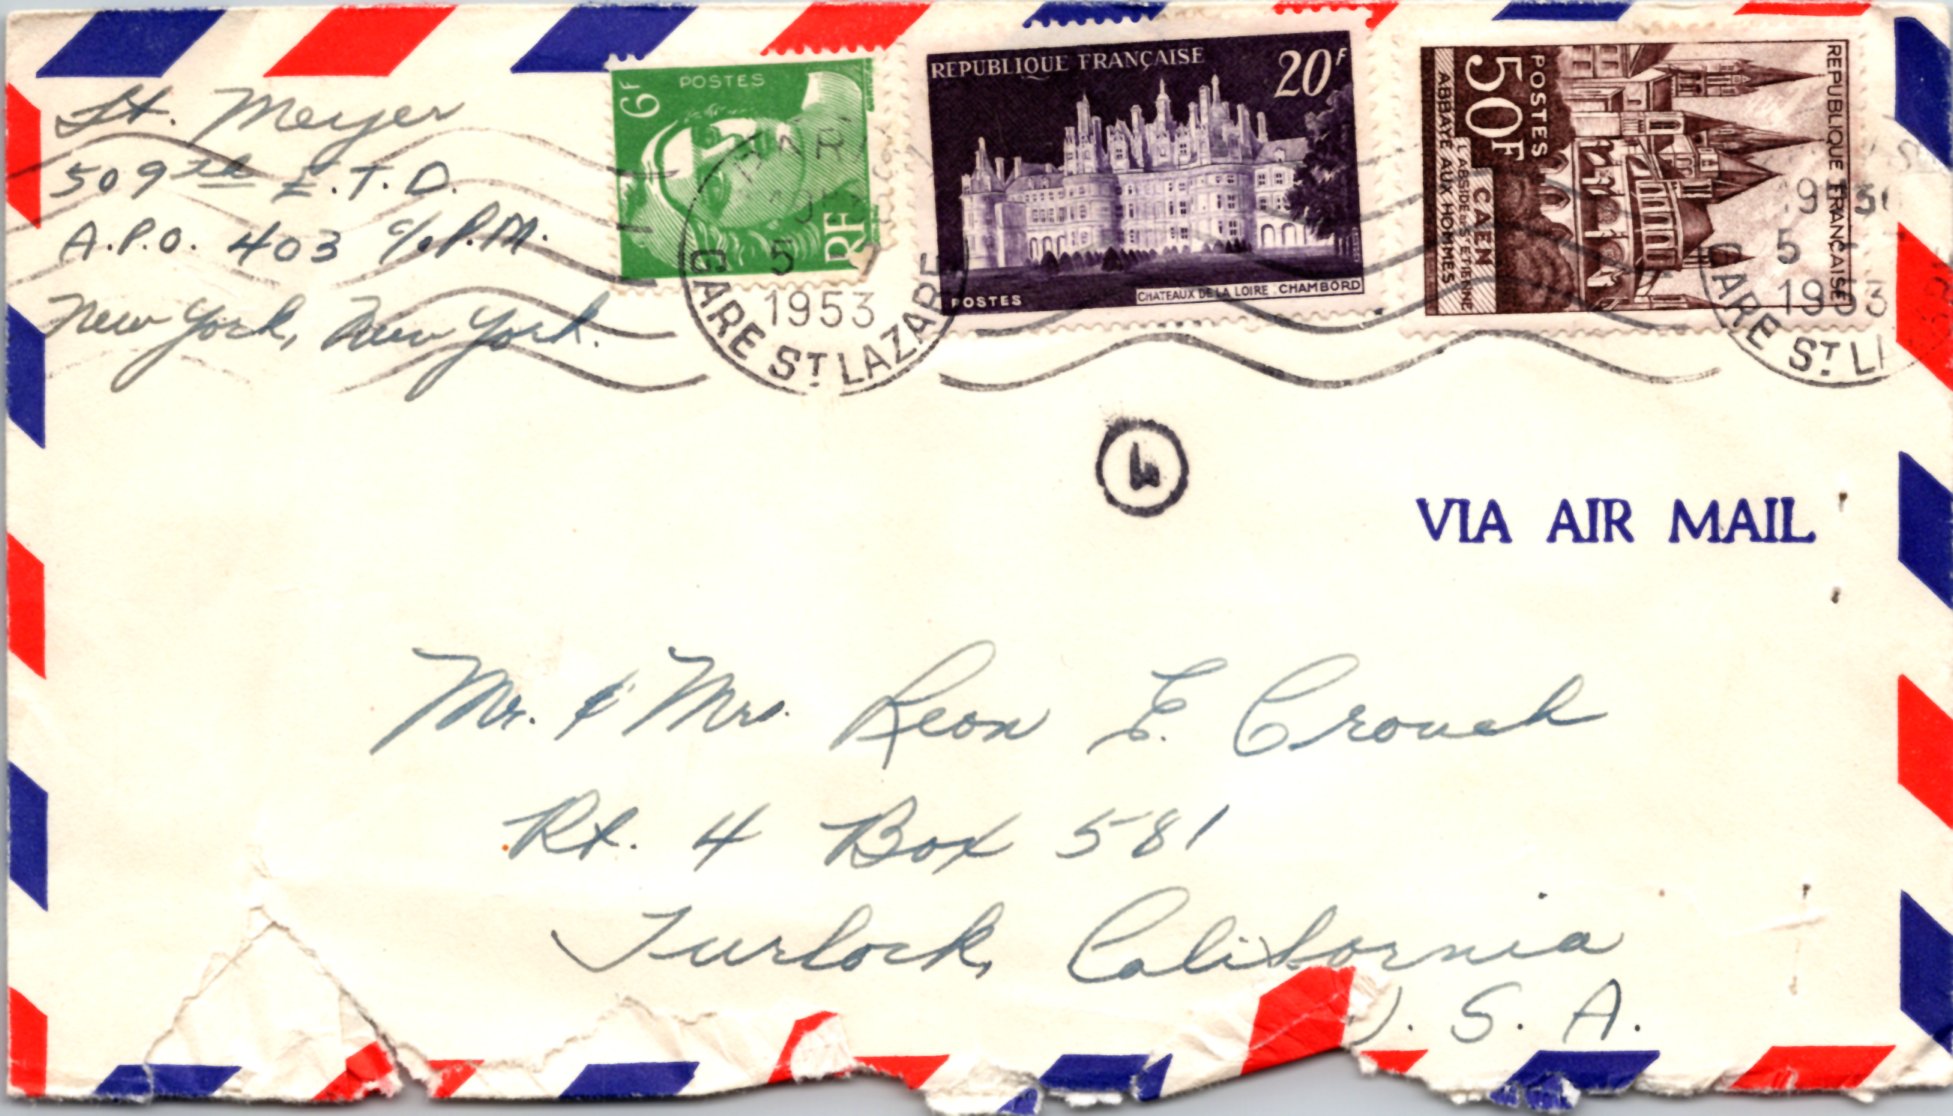 Lt. Meyer
509th E.T.D.
A.P.O. 403 c/o P.M.
New York, New York.
6F
POSTES
RF
REPUBLIQUE FRANÇAISE
20F
POSTES
CHATEAUX DE LA LOIRE : CHAMBORD
REPUBLIQUE FRANÇAISE
POSTES
50F
CAEN
L'ABSIDE DE ST ETIENNE
ABBAYE AUX HOMMES
PARIS
5
1953
GARE ST LAZARE
5 -
1953
GARE ST L
VIA AIR MAIL
Mr. & Mrs. Leon E. Crouch
Rt. 4 Box 581
Turlock, California
U. S. A.